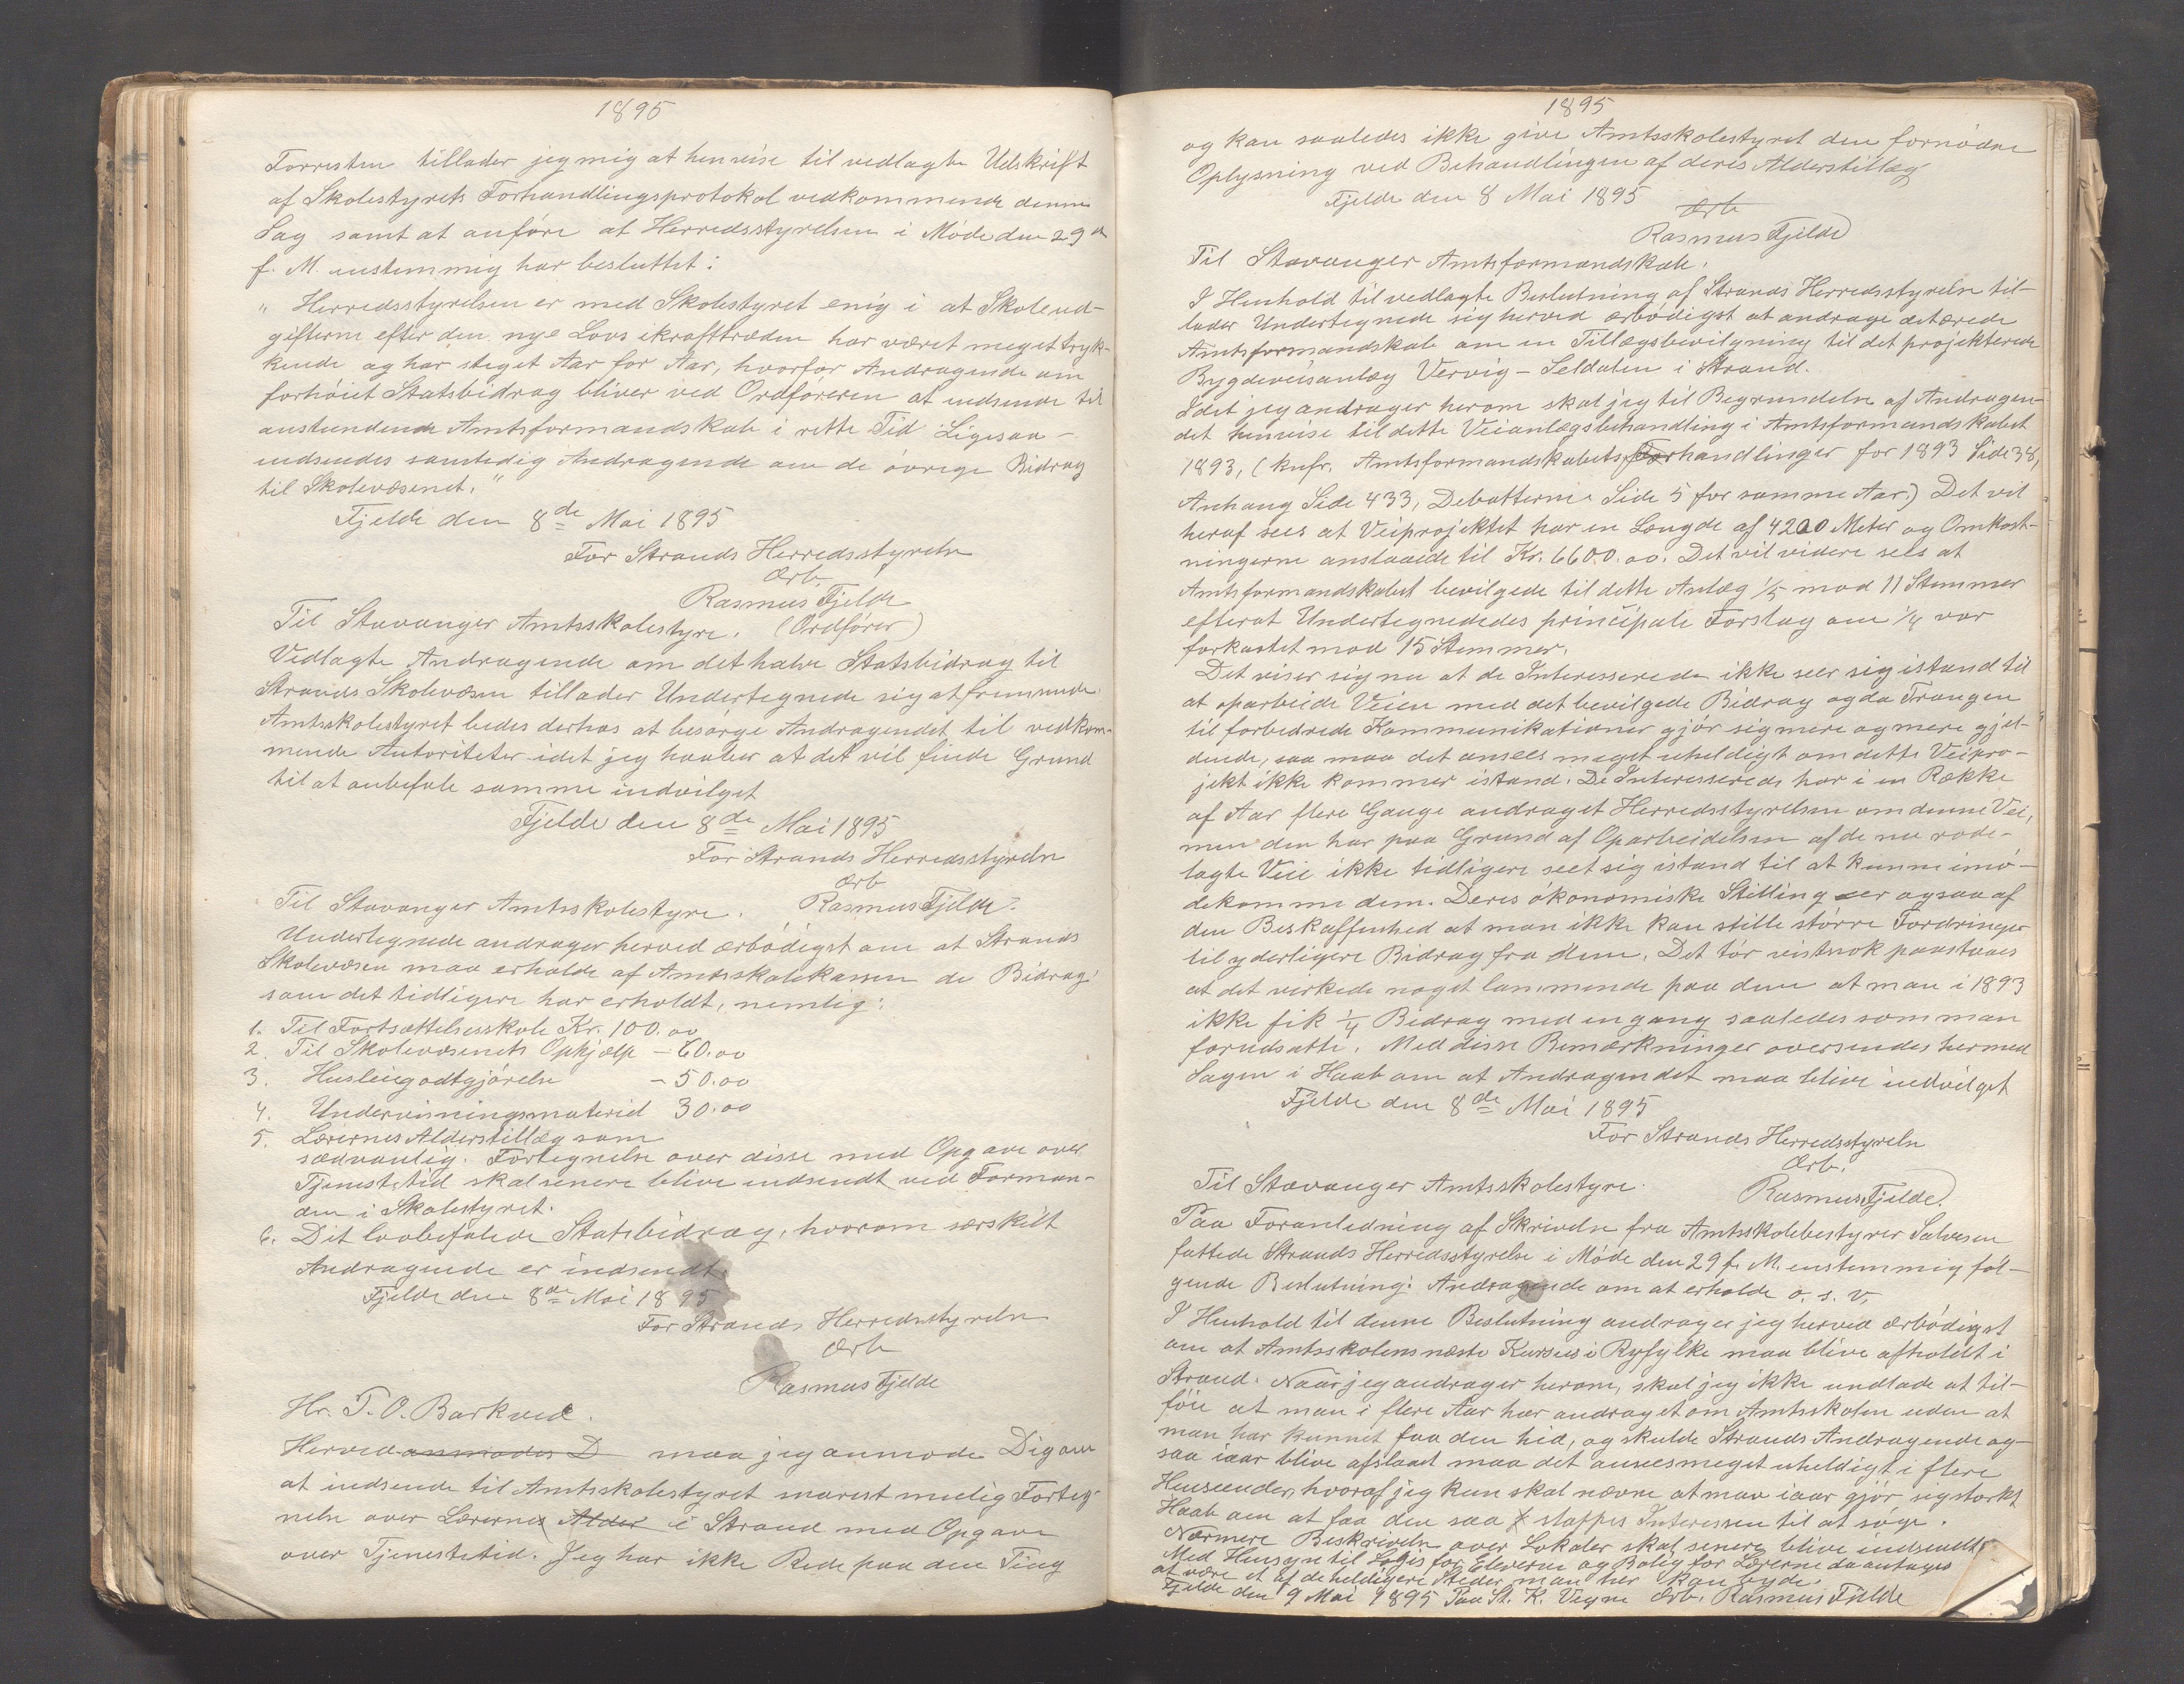 1895
Forresten tillader jeg mig at henvise til vedlagte Udskrift
af Skolestyrets Forhandlingsprotokol vedkommende denne
Sag samt at anføre at Herredsstyrelsen i Møde den 29de
f. M. enstemmig har besluttet:
"Herredsstyrelsen er med Skolestyret enig i at Skoleud-
gifterne efter den nye Lovs ikrafttræden har været meget tryk-
kende og har steget Aar for Aar, hvorfor Andragende om
forhøiet Statsbidrag bliver ved Ordføreren at indsende til
anstundende Amtsformandskab i rette Tid Ligesaa-
indsendes samtidig Andragende om de øvrige Bidrag
til Skolevæsenet."
Fjelde den 8de Mai 1895
For Strands Herredsstyrelse
Ærb.
Rasmus Fjelde
Til Stavanger Amtsskolestyre. (Ordfører)
Vedlagte Andragende om det halve Statsbidrag til
Strands Skolevæsen tillader Undertegnede sig at fremsende.
Amtsskolestyret bedes derhos at besørge Andragendet til vedkom-
mende Autoriteter idet jeg haaber at det vil finde Grund
til at anbefale samme indvilget
Fjelde den 8de Mai 1895
For Strands Herredsstyrelse
Ærb
Til Stavanger Amtsskolestyre. Rasmus Fjelde.
Undertegnede andrager herved ærbødigst om at Strands
Skolevæsen maa erholde af Amtsskolekassen de Bidrag
som det tidligere har erholdt, nemlig:
1. Til Fortsættelsesskole Kr. 100.00
2. Til Skolevæsenets Ophjælp – 60.00
3. Husleiegodtgjørelse – 50.00
4. Undervisningsmateriel 30.00
5. Lærernes Alderstillæg som
sædvanlig. Fortegnelse over disse med Opgave over
Tjenestetid skal senere blive indsendt ved Forman-
den i Skolestyret.
6. Det lovbefalede Statsbidrag, hvorom særskilt
Andragende er indsendt.
Fjelde den 8de Mai 1895
For Strands Herredsstyrelse
Ærb
Rasmus Fjelde
Hr. T. O. Barkved.
Herved anmodes D maa jeg anmode Dig om
at indsende til Amtsskolestyret snarest mulig Forteg-
nelse over Lærernes Alder i Strand med Opgave
over Tjenestetid. Jeg har ikke Rede paa den Ting
1895
og kan saaledes ikke give Amtsskolestyret den fornødne
Oplysning ved Behandlingen af deres Alderstillæg
Fjelde den 8 Mai 1895
Ærb
Rasmus Fjelde
Til Stavanger Amtsformandskab.
I Henhold til vedlagte Beslutning af Strands Herredsstyrelse til-
lader Undertegnede sig herved ærbødigst at andrage detærede
Amtsformandskab om en Tillægsbevilgning til det projekterede
Bygdeveisanlæg Vervig – Leldalen i Strand.
Idet jeg andrager herom skal jeg til Begrundelse af Andragen-
det henvise til dette Veianlægs behandling i Amtsformandskabet
1893, (knfr. Amtsformandskabets Forhandlinger for 1893 Side 38,
Anhang Side 433, Debatterne Side 5 for samme Aar.) Det vil
heraf sees at Veiprojektet har en Længde af 4200 Meter og Omkost-
ningerne anslaaede til Kr. 6600.00. Det vil videre sees at
Amtsformandskabet bevilgede til dette Anlæg 1/5 mod 11 Stemmer
efterat Undertegnededes principale Forslag om 1/4 var
forkastet mod 15 Stemmer.
Det viser sig nu at de Interesserede ikke seer sig istand til
at oparbeide Veien med det bevilgede Bidrag og da Trangen
til forbedrede Kommunikationer gjør sig mere og mere gjæl-
dende, saa maa det ansees meget uheldigt om dette Veipro-
jekt ikke kommer istand. De Interesserede har i en Række
af Aar flere Gange andraget Herredsstyrelsen om denne Vei,
men den har paa Grund af Oparbeidelsen af de nu rode-
lagte Veie ikke tidligere seet sig istand til at kunne imø-
dekomme dem. Deres økonomiske Stilling er ogsaa af
den Beskaffenhed at man ikke kan stille større Fordringer
til yderligere Bidrag fra dem. Det tør vistnok paastaaes
at det virkede noget lammende paa dem at man i 1893
ikke fik 1/4 Bidrag med engang saaledes som man
forudsatte. Med disse Bemærkninger oversendes hermed
Sagen i Haab om at Andragendet maa blive indvilget
Fjelde den 8de Mai 1895
For Strands Herredsstyrelse
Ærb.
Til Stavanger Amtsskolestyre. Rasmus Fjelde.
Paa Foranledning af Skrivelse fra Amtsskolebestyrer Salvesen
fattede Strands Herredsstyrelse i Møde den 29 f. M. enstemmig føl-
gende Beslutning: Andragende om at erholde o. s. v.
I Henhold til denne Beslutning andrager jeg herved ærbødigst
om at Amtsskolens næste Kursus i Ryfylke maa blive afholdt i
Strand. Naar jeg andrager herom, skal jeg ikke undlade at til-
føie at man i flere Aar har andraget om Amtsskolen uden at
man har kunnet faa den hid, og skulde Strands Andragende og-
saa iaar blive afslaaet maa det ansees meget uheldigt i flere
Henseender, hvoraf jeg kun skal nævne at man iaar gjør sig stærkt
Haab om at faa den saa slappes Interessen til at søge.
Nærmere Beskrivelse over Lokaler skal senere blive indsendt.
Med Hensyn til Logis for Eleverne og Bolig for Lærerne da antages
at være et af de heldigere Steder man her kan byde.
Fjelde den 9 Mai 1895 Paa St. K. Vegne Ærb. Rasmus Fjelde